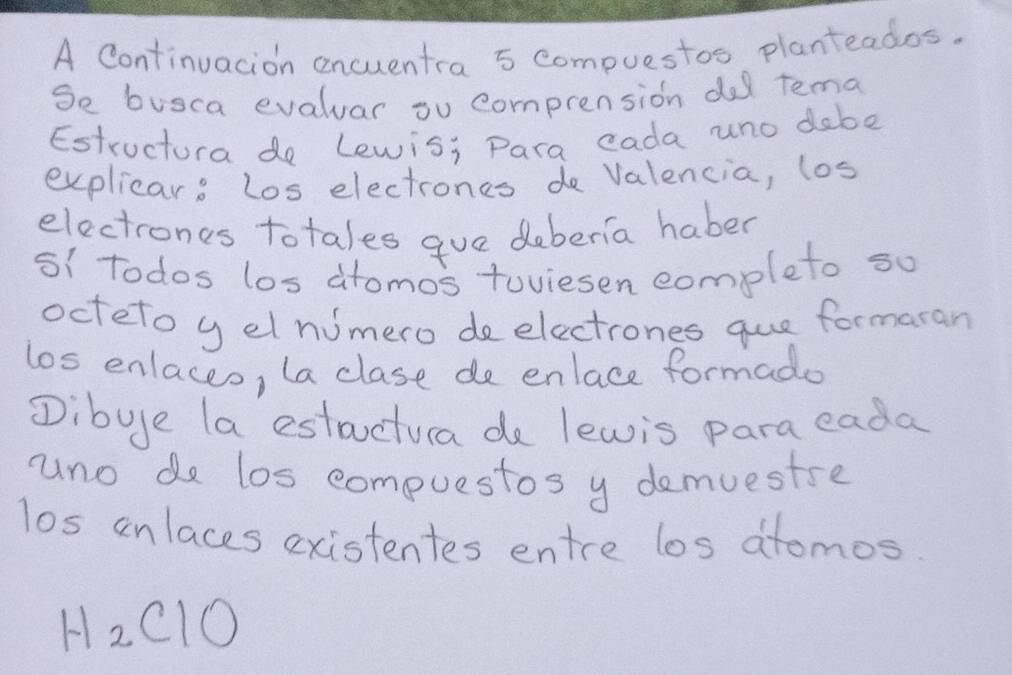 A Continuación encuentra 5 compuestos planteados.
Se busca evaluar su comprensión del Tema
Estructura de Lewis; Para cada uno debe
explicar: Los electrones de Valencia, los
electrones Totales que debería haber
sí Todos los átomos tuviesen completo su
octeto y el número de electrones que formaran
los enlaces, la clase de enlace formado
Dibuje la estructura de lewis para cada
uno de los compuestos y demuestre
los enlaces existentes entre los átomos.
H₂ClO